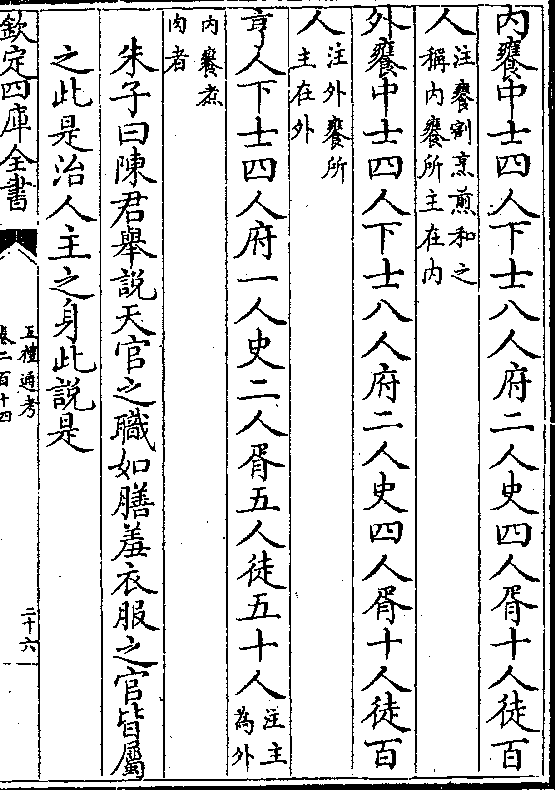 內饔中士四人下士八人府二人史四人胥十人徒百
人注饔割烹煎和之
稱内饔所主在内
外饔中士四人下士八人府二人史四人胥十人徒百
人注外饔所
主在外
亨人下士四人府一人史二人胥五人徒五十人注主
為外
内饔煮
肉者
朱子曰陳君舉説天官之職如膳羞衣服之官皆屬
之此是治人主之身此説是
欽定四庫全書
五禮通考
卷二百十四
二十六